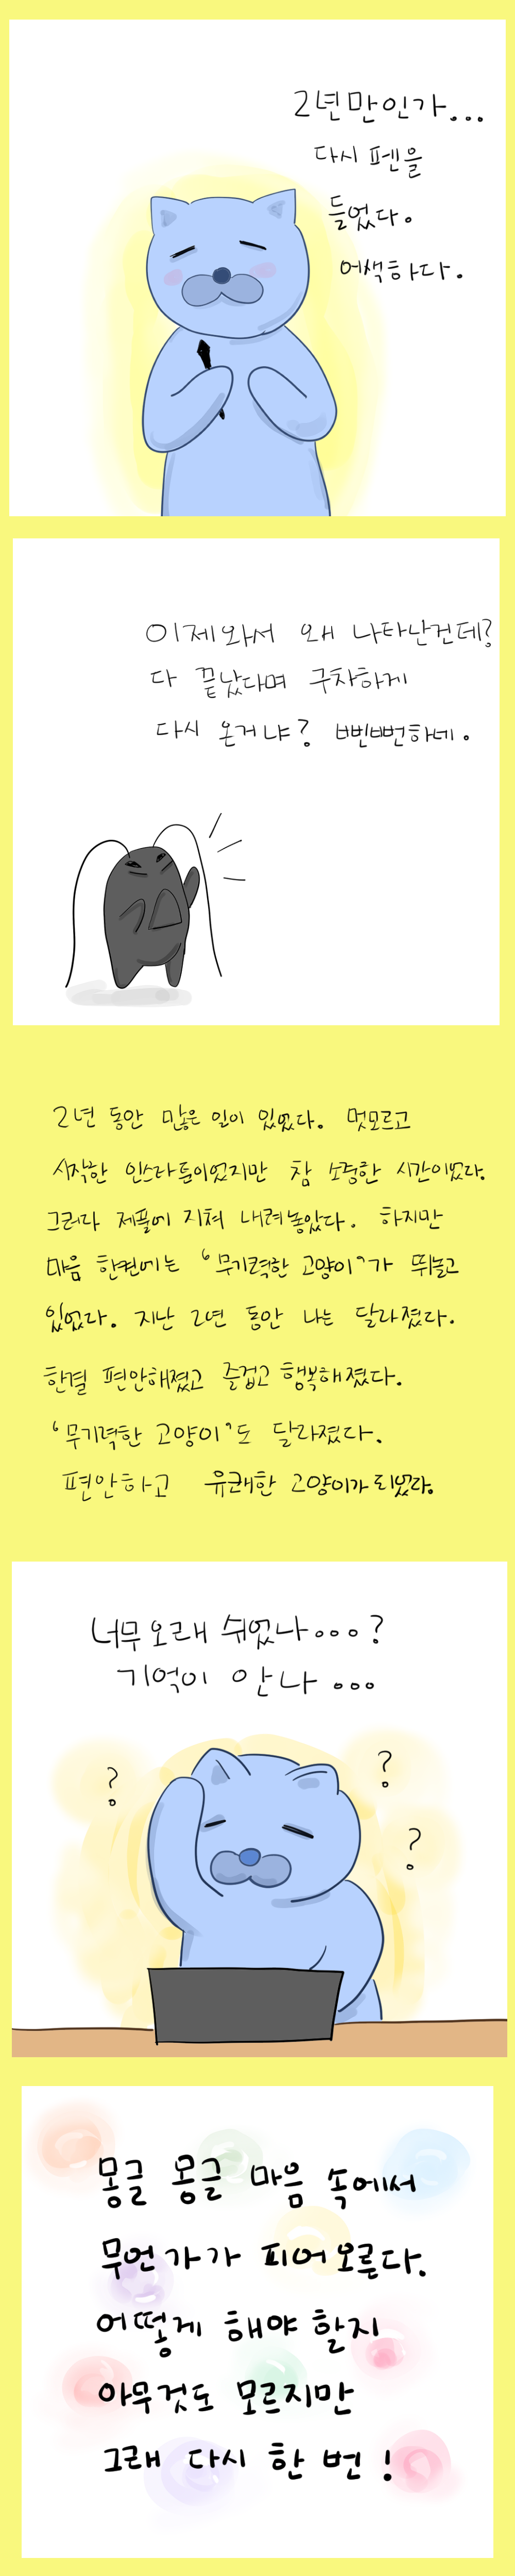 2년만인가...
다시 펜을
들었다.
어색하다.
이제와서 왜 나타난건데?
다 끝났다며 구차하게
다시 온거냐? 뻔뻔하네.
2년 동안 많은 일이 있었다. 멋모르고
시작한 인스타툰이었지만 참 소중한 시간이었다.
그러다 제풀에 지쳐 내려놓았다. 하지만
마음 한켠에는 '무기력한 고양이'가 뛰놀고
있었다. 지난 2년 동안 나는 달라졌다.
한결 편안해졌고 즐겁고 행복해졌다.
'무기력한 고양이'도 달라졌다.
편안하고 유쾌한 고양이가 되었다.
너무 오래 쉬었나...?
기억이 안나...
?
?
?
몽글 몽글 마음 속에서
무언가가 피어오른다.
어떻게 해야 할지
아무것도 모르지만
그래 다시 한 번!